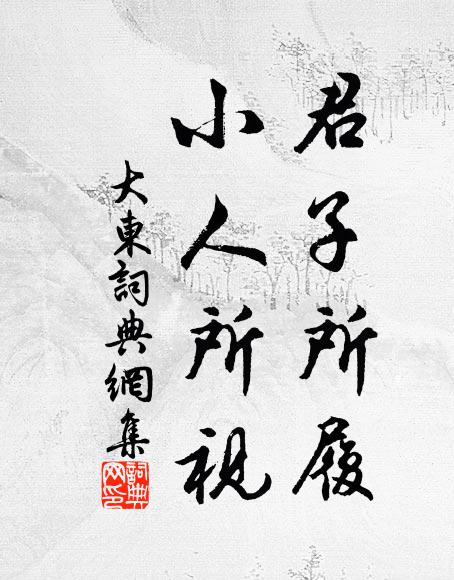 君子所履
小人所視
大東詞典網集
詞典
网印